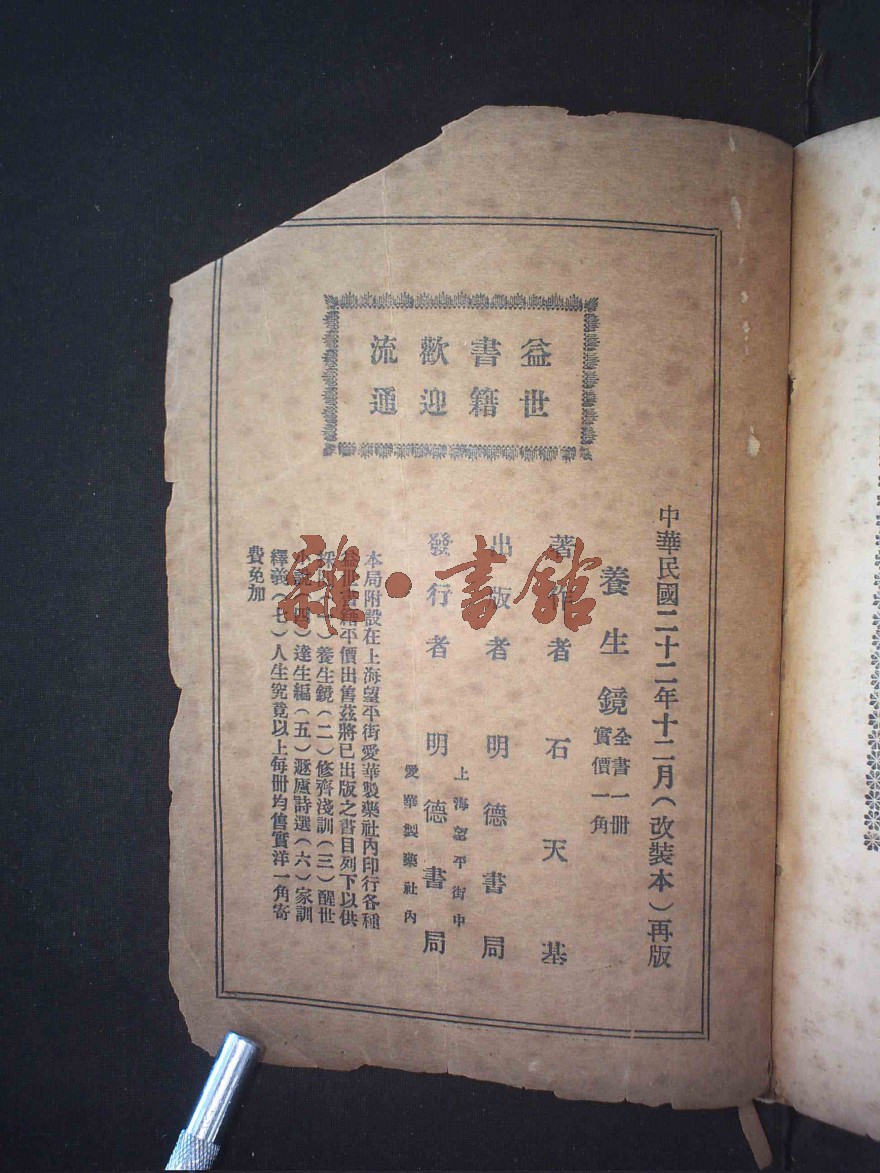 益世
書籍
歡迎
流通
中華民國二十二年十二月(改裝本)再版
養生鏡
全書一冊
實價一角
著作者 石天基
出版者 明德書局
上海望平街中
發行者 明德書局
愛華製藥社內
本局附設在上海望平街愛華製藥社內印行各種
益世書籍平價出售茲將已出版之書目列下以供
採閱(一)養生鏡(二)修齊淺訓(三)醒世
(四)達生編(五)遯廬詩選(六)家訓
釋義(七)人生究竟以上每冊均售實洋一角寄
費免加
雜·書館